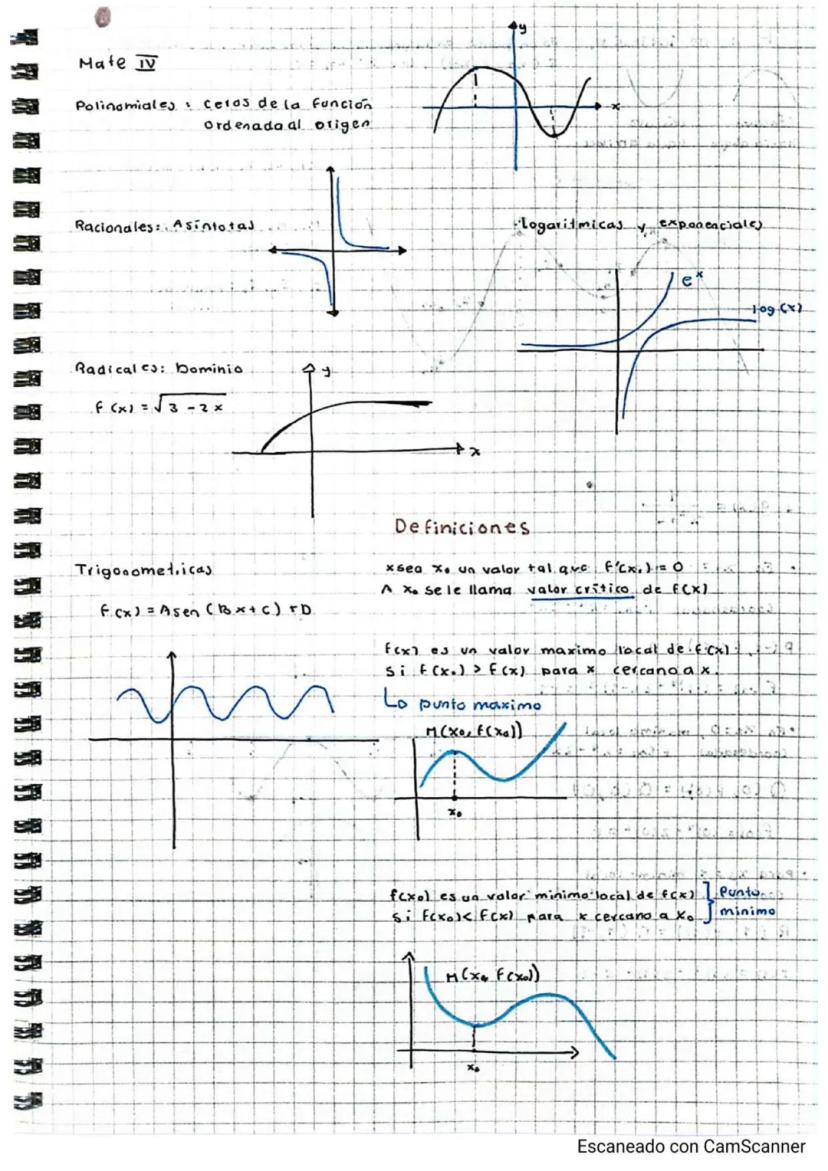 Mate IV
Polinomiales: ceros de la función
ordenada al origen
y
x
Racionales: Asíntotas
logaritmicas y exponenciales
e^x
log(x)
Radicales: Dominio
f(x) = √3-2x
y
x
Definiciones
Trigonometricas
f(x) = A sen (Bx+C) + D
sea x₀ un valor tal que f'(x₀) = 0
A x₀ se le llama valor crítico de f(x)
f(x) es un valor maximo local de f(x)
si f(x₀) > f(x) para x cercano a x.
Lo punto maximo
M(x₀, f(x₀))
x₀
f(x₀) es un valor minimo local de f(x)
si f(x₀) < f(x) para x cercano a x₀
Punto
minimo
M(x₀ f(x₀))
x₀
Escaneado con CamScanner